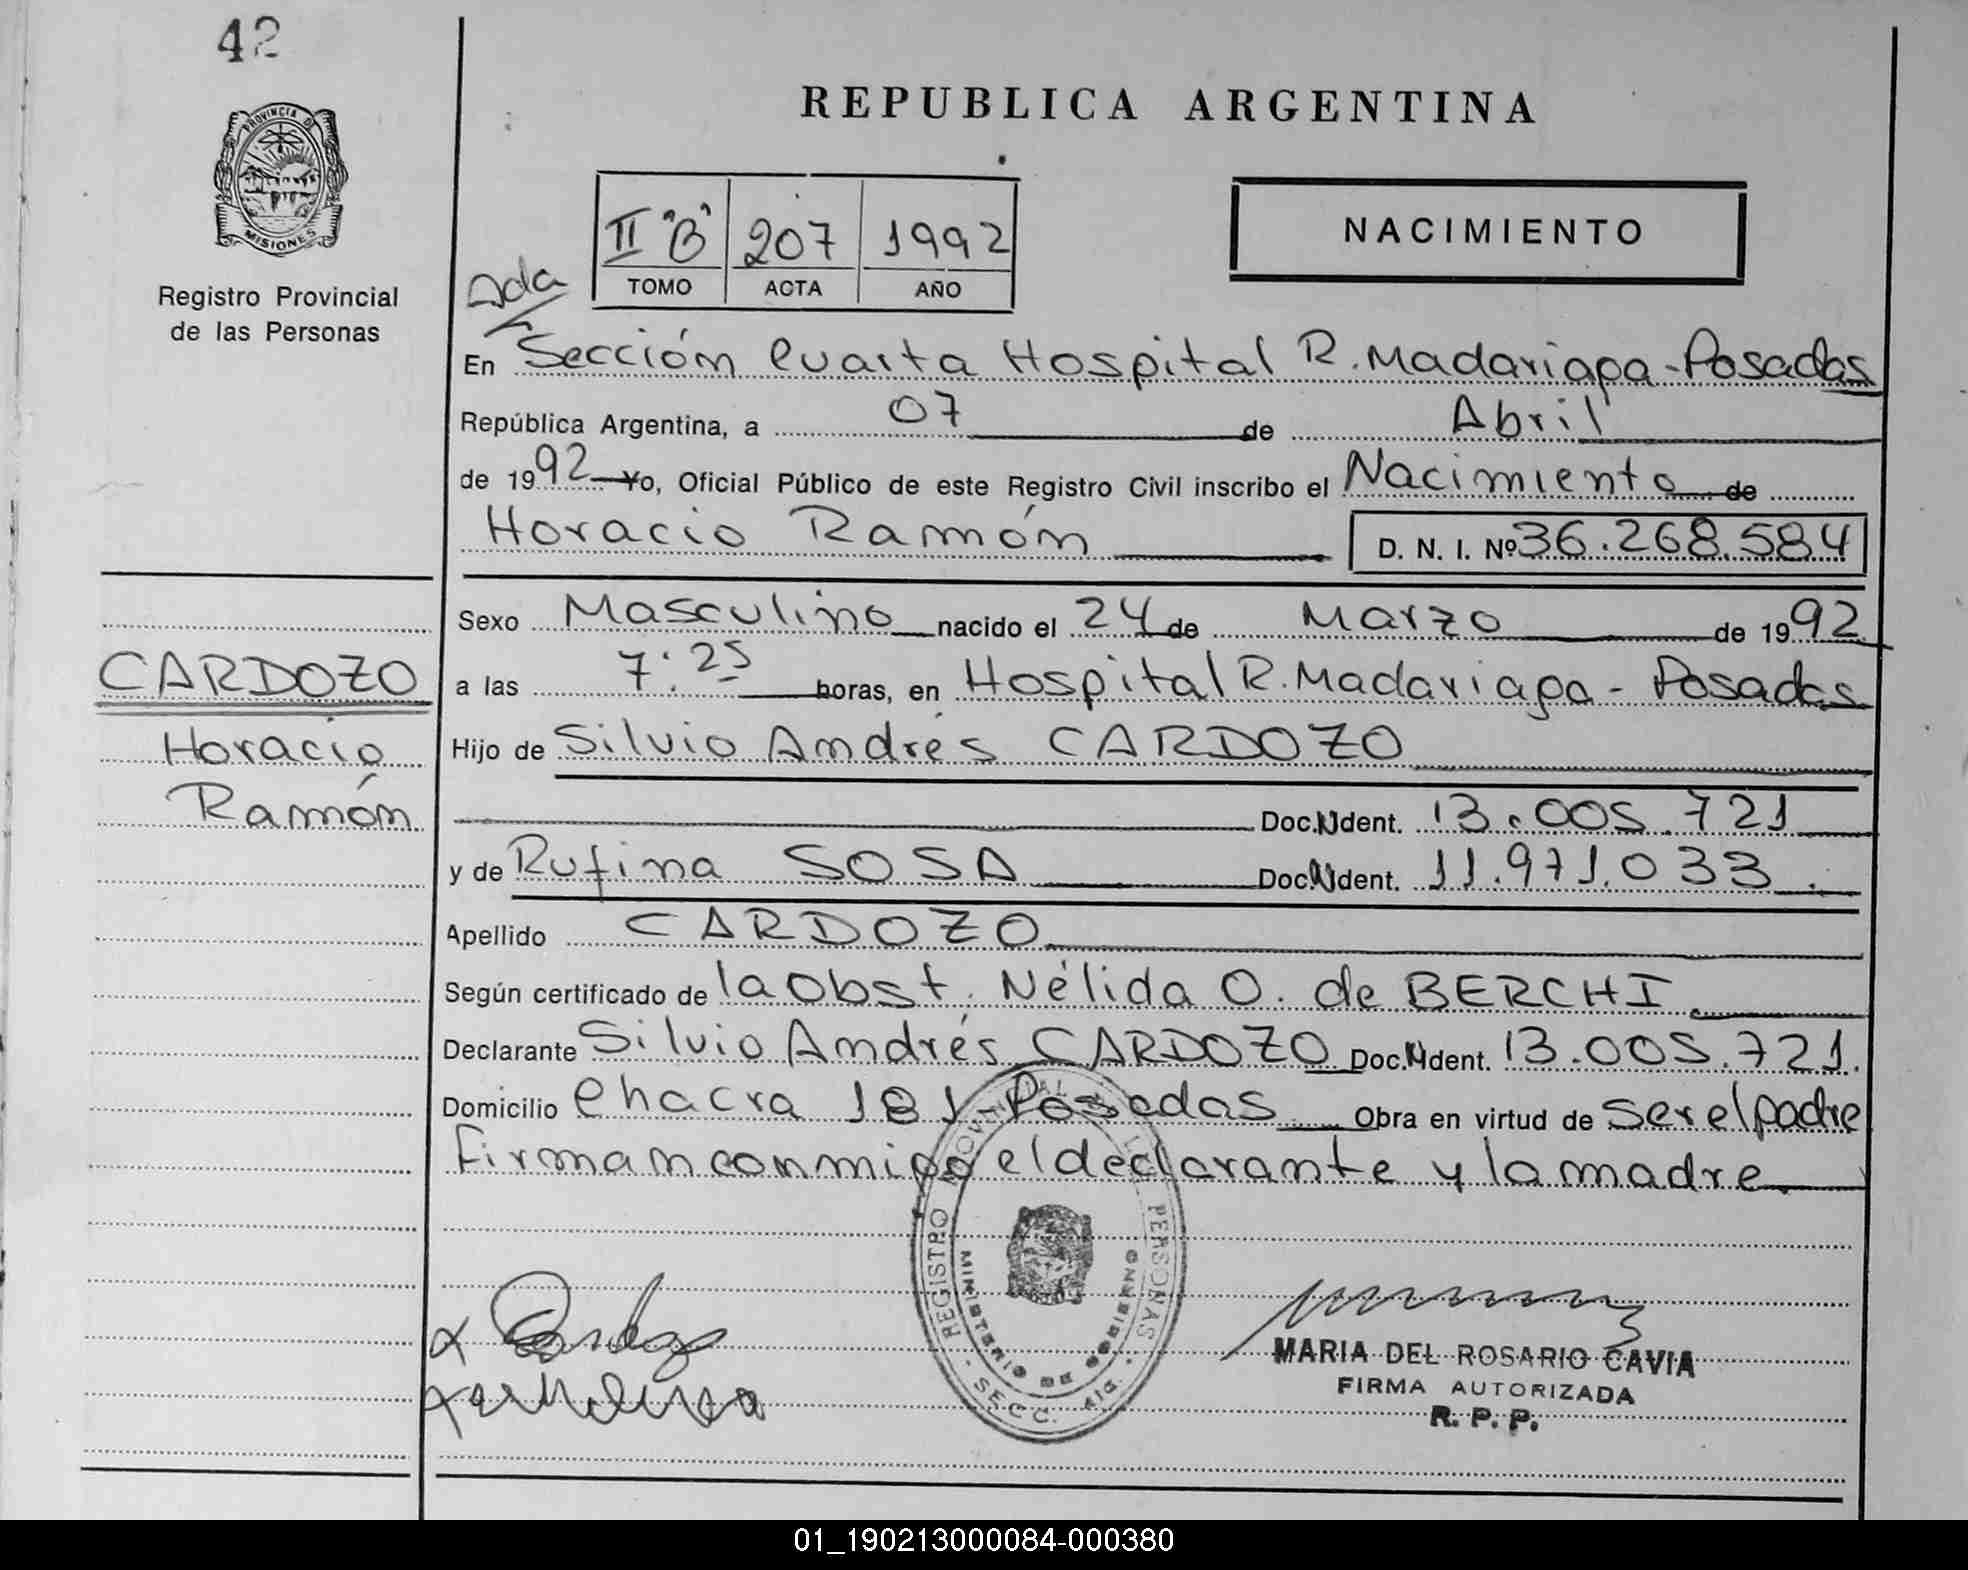 42
PROVINCIA DE
MISIONES
Registro Provincial
de las Personas
REPUBLICA ARGENTINA
II "B" 207 1992
TOMO ACTA AÑO
NACIMIENTO
Ada
En Sección Cuarta Hospital R. Madariaga - Posadas
República Argentina, a 07 de Abril
de 1992 Yo, Oficial Público de este Registro Civil inscribo el Nacimiento de
Horacio Ramón D. N. I. Nº 36.268.584
Sexo Masculino nacido el 24 de Marzo de 1992
CARDOZO
a las 7:25 horas, en Hospital R. Madariaga - Posadas
Horacio
Hijo de Silvio Andrés CARDOZO
Ramón
Doc. Ident. 13.005.721
y de Rufina SOSA Doc. Ident. 11.971.033.
Apellido CARDOZO
Según certificado de la Obst. Nélida O. de BERCHI
Declarante Silvio Andrés CARDOZO Doc. Ident. 13.005.721.
Domicilio Chacra 181 - Posadas Obra en virtud de ser el padre
Firman conmigo el declarante y la madre
REGISTRO PROVINCIAL PERSONAS
MINISTERIO DE GOBIERNO
SECC. 4ta.
MARIA DEL ROSARIO CAVIA
FIRMA AUTORIZADA
R. P. P.
01_190213000084-000380